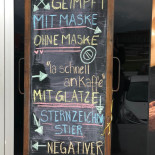 GEIMPFT
MIT MASKE
OHNE MASKE
"la schnell
an Kaffe"
MIT GLATZE
STERNZEICHN
STIER
NEGATIVER